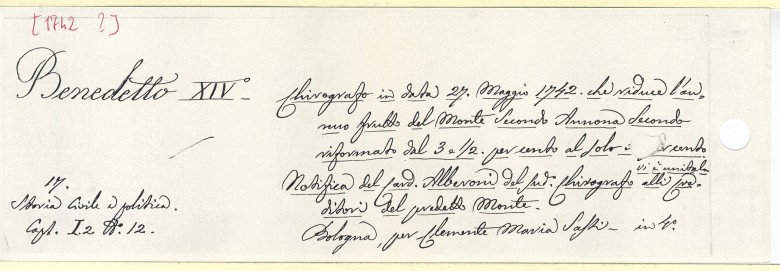 [1742 ?]
Benedetto XIV.°
Chirografo in data 27. Maggio 1742. che riduce l'an-
nuo frutto del Monte Secondo Annona Secondo
riformato dal 3 e 1/2. per cento al solo : per cento
vi è unita la
Notifica del Card. Alberoni del sud.° Chirografo alli Cre-
ditori del predetto Monte.
Bologna, per Clemente Maria Sassi - in 4.°
17.
Storia Civile e politica.
Cart. I.2 N.° 12.